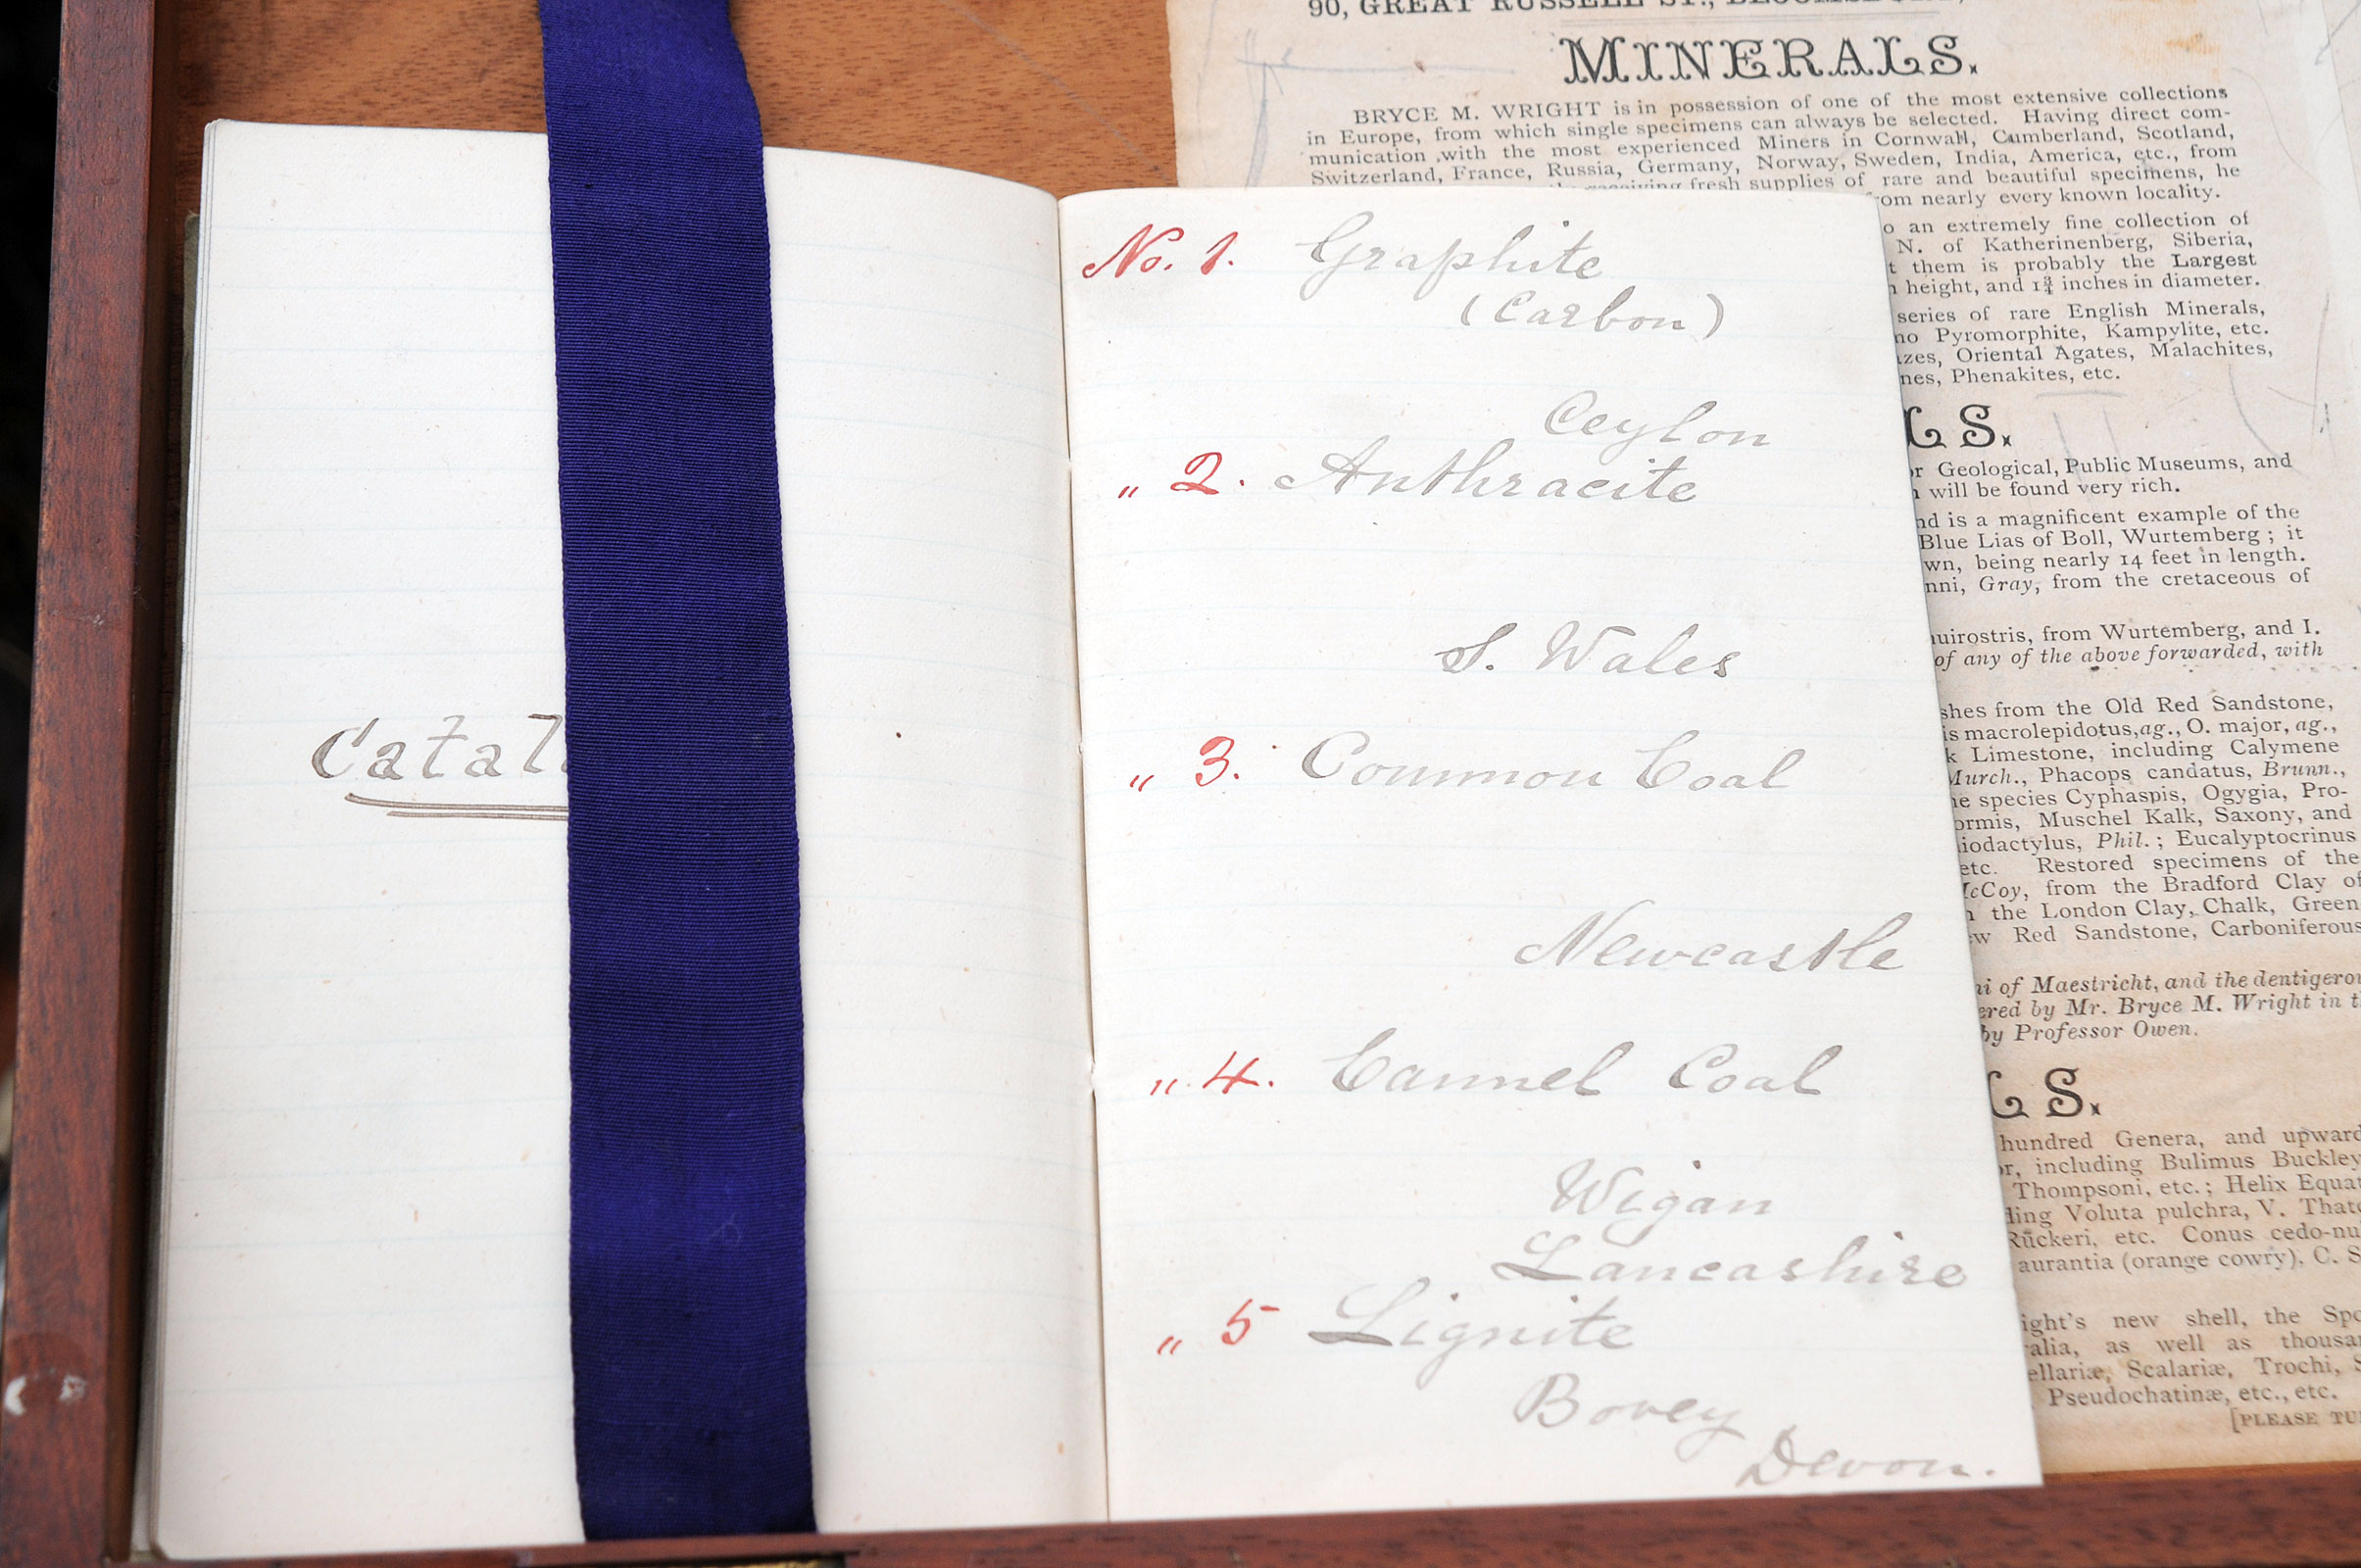 Catal
No. 1. Graphite
(Carbon)
Ceylon
„ 2. Anthracite
S. Wales
„ 3. Common Coal
Newcastle
„ 4. Cannel Coal
Wigan
Lancashire
„ 5 Lignite
Bovey
Devon.
90, GREAT RUSSELL ST., BLOOMSBURY,
MINERALS.
BRYCE M. WRIGHT is in possession of one of the most extensive collections
in Europe, from which single specimens can always be selected. Having direct com-
munication with the most experienced Miners in Cornwall, Cumberland, Scotland,
Switzerland, France, Russia, Germany, Norway, Sweden, India, America, etc., from
receiving fresh supplies of rare and beautiful specimens, he
from nearly every known locality.
o an extremely fine collection of
N. of Katherinenberg, Siberia,
t them is probably the Largest
height, and 1¾ inches in diameter.
series of rare English Minerals,
no Pyromorphite, Kampylite, etc.
zes, Oriental Agates, Malachites,
nes, Phenakites, etc.
LS.
or Geological, Public Museums, and
will be found very rich.
nd is a magnificent example of the
Blue Lias of Boll, Wurtemberg ; it
wn, being nearly 14 feet in length.
nni, Gray, from the cretaceous of
nuirostris, from Wurtemberg, and I.
of any of the above forwarded, with
shes from the Old Red Sandstone,
is macrolepidotus, ag., O. major, ag.,
k Limestone, including Calymene
Murch., Phacops candatus, Brunn.,
ne species Cyphaspis, Ogygia, Pro-
ormis, Muschel Kalk, Saxony, and
iodactylus, Phil. ; Eucalyptocrinus
etc. Restored specimens of the
McCoy, from the Bradford Clay of
the London Clay, Chalk, Green
ew Red Sandstone, Carboniferous
ni of Maestricht, and the dentigerou
ered by Mr. Bryce M. Wright in t
by Professor Owen.
LS.
hundred Genera, and upward
or, including Bulimus Buckley
Thompsoni, etc. ; Helix Equat
ding Voluta pulchra, V. Thatc
Rückeri, etc. Conus cedo-nu
aurantia (orange cowry), C. S
ight's new shell, the Spo
ralia, as well as thousan
ellariæ, Scalariæ, Trochi, S
Pseudochatinæ, etc., etc.
[PLEASE TU